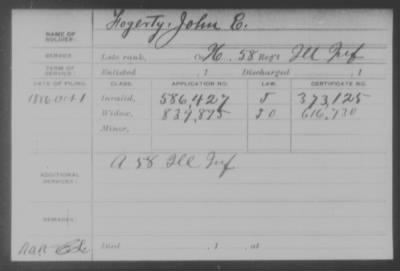 NAME OF SOLDIER: Hogerty, John E.
SERVICE: Late rank, Co. H, 58 Reg't Ill Inf
TERM OF SERVICE: Enlisted , 1 Discharged , 1
DATE OF FILING. CLASS. APPLICATION NO. LAW. CERTIFICATE NO.
1886 Oct 1 Invalid, 586,427 373,125
Widow, 839,875 616,730
Minor,
ADDITIONAL SERVICES: A 58 Ill Inf
REMARKS:
Died , 1 , at